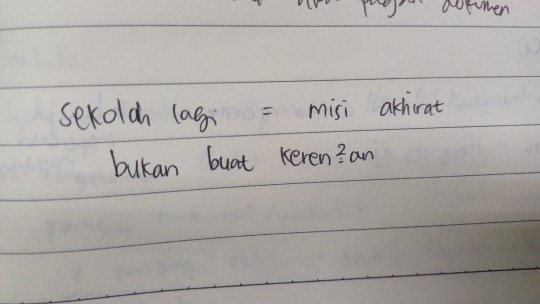 dokumen
sekolah lagi = misi akhirat
bukan buat keren²an